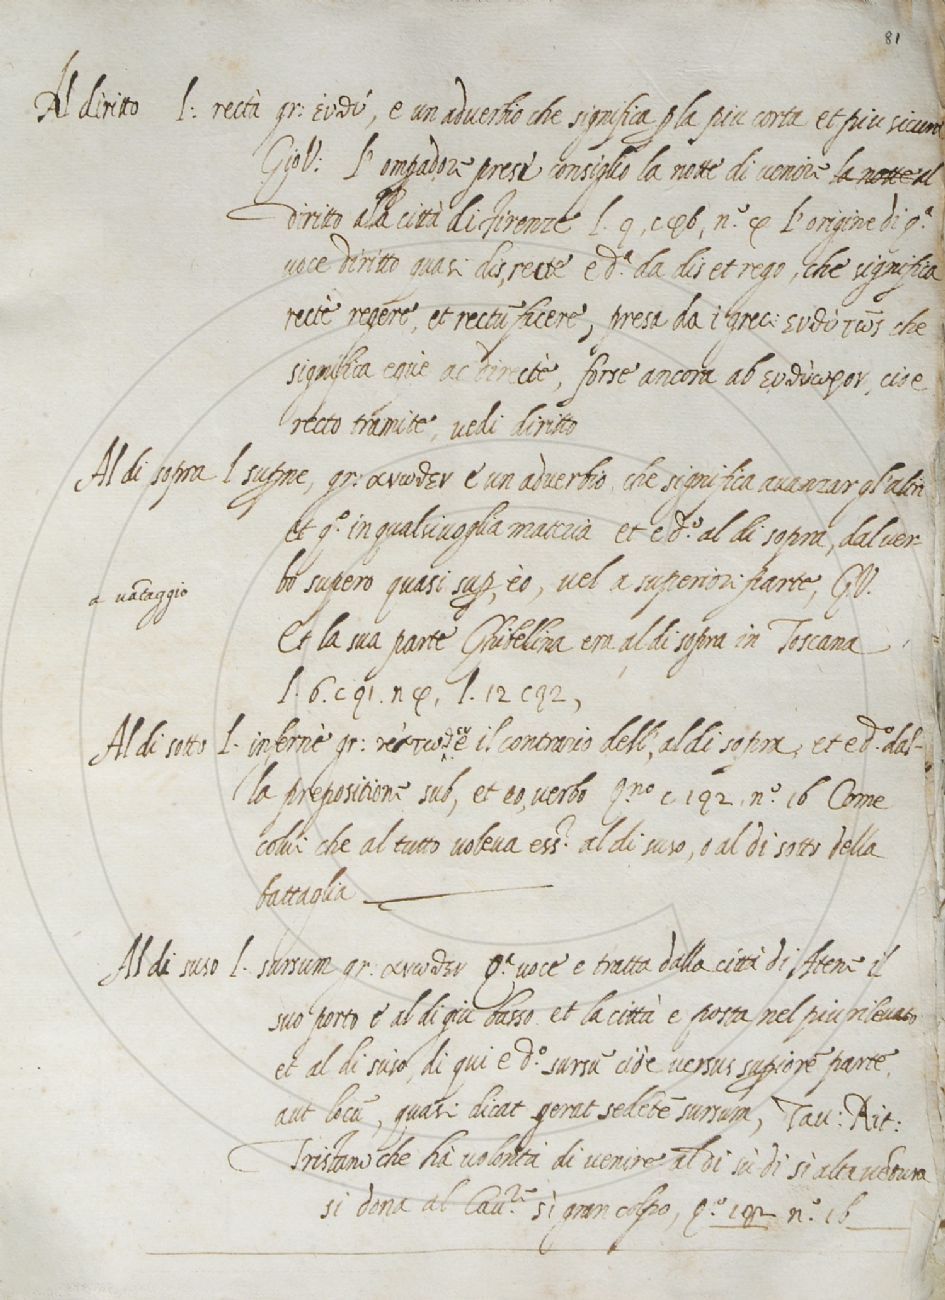 81
Al diritto l: rectà gr: ἐυθύ, e un adverbio che significa p la piu corta et piu sicura
GioV: l'
presè consiglio la notte di venire la notte al
diritto alla città di Firenze l. 9, c 96, n.º l'origine di q.ª
voce diritto quasi dis,recte e d.ª da dis et rego, che significa
rectè regere, et rectū ficere, presa da i greci ευθύτως che
significa equè ac directè, forse ancora ab ευθύωρον, cioe
recto tramite, vedi diritto
Al di sopra l supne, gr: ανωθεν é un adverbio, che significa avanzar gl'altri
et q.º in qualsivoglia materia et e d.º al di sopra, dal ver-
bo supero quasi sup, èo, vel a superiori parte, GV.
a vātaggio
Et la sua parte Ghibellina era al di sopra in Toscana
l. 6. c 91. n φ, l. 12 c 92,
Al di sotto l. infernè gr: è il contrario dell, al di sopra, et e d.º dal-
la prepositione sub, et eo, verbo c 192. n.º 16 Come
colui che al tutto voleva ess.r al di suso, o al di sotto della
battaglia
Al di suso l. sursum gr: ανωθεν q.ª voce e tratta dalla città di Atene il
suo porto é al di giù basso et la città e posta nel piu rilevato
et al di suso, di qui e d.º sursū cioè versus supiorē partē,
aut locū, quasi dicat gerat sedētē sursum, Tav: Rit:
Tristano che hà volontà di venire al di sù di sì alta vētura
si dona al Cav.re sì gran colpo, c.º 192 n.º 16